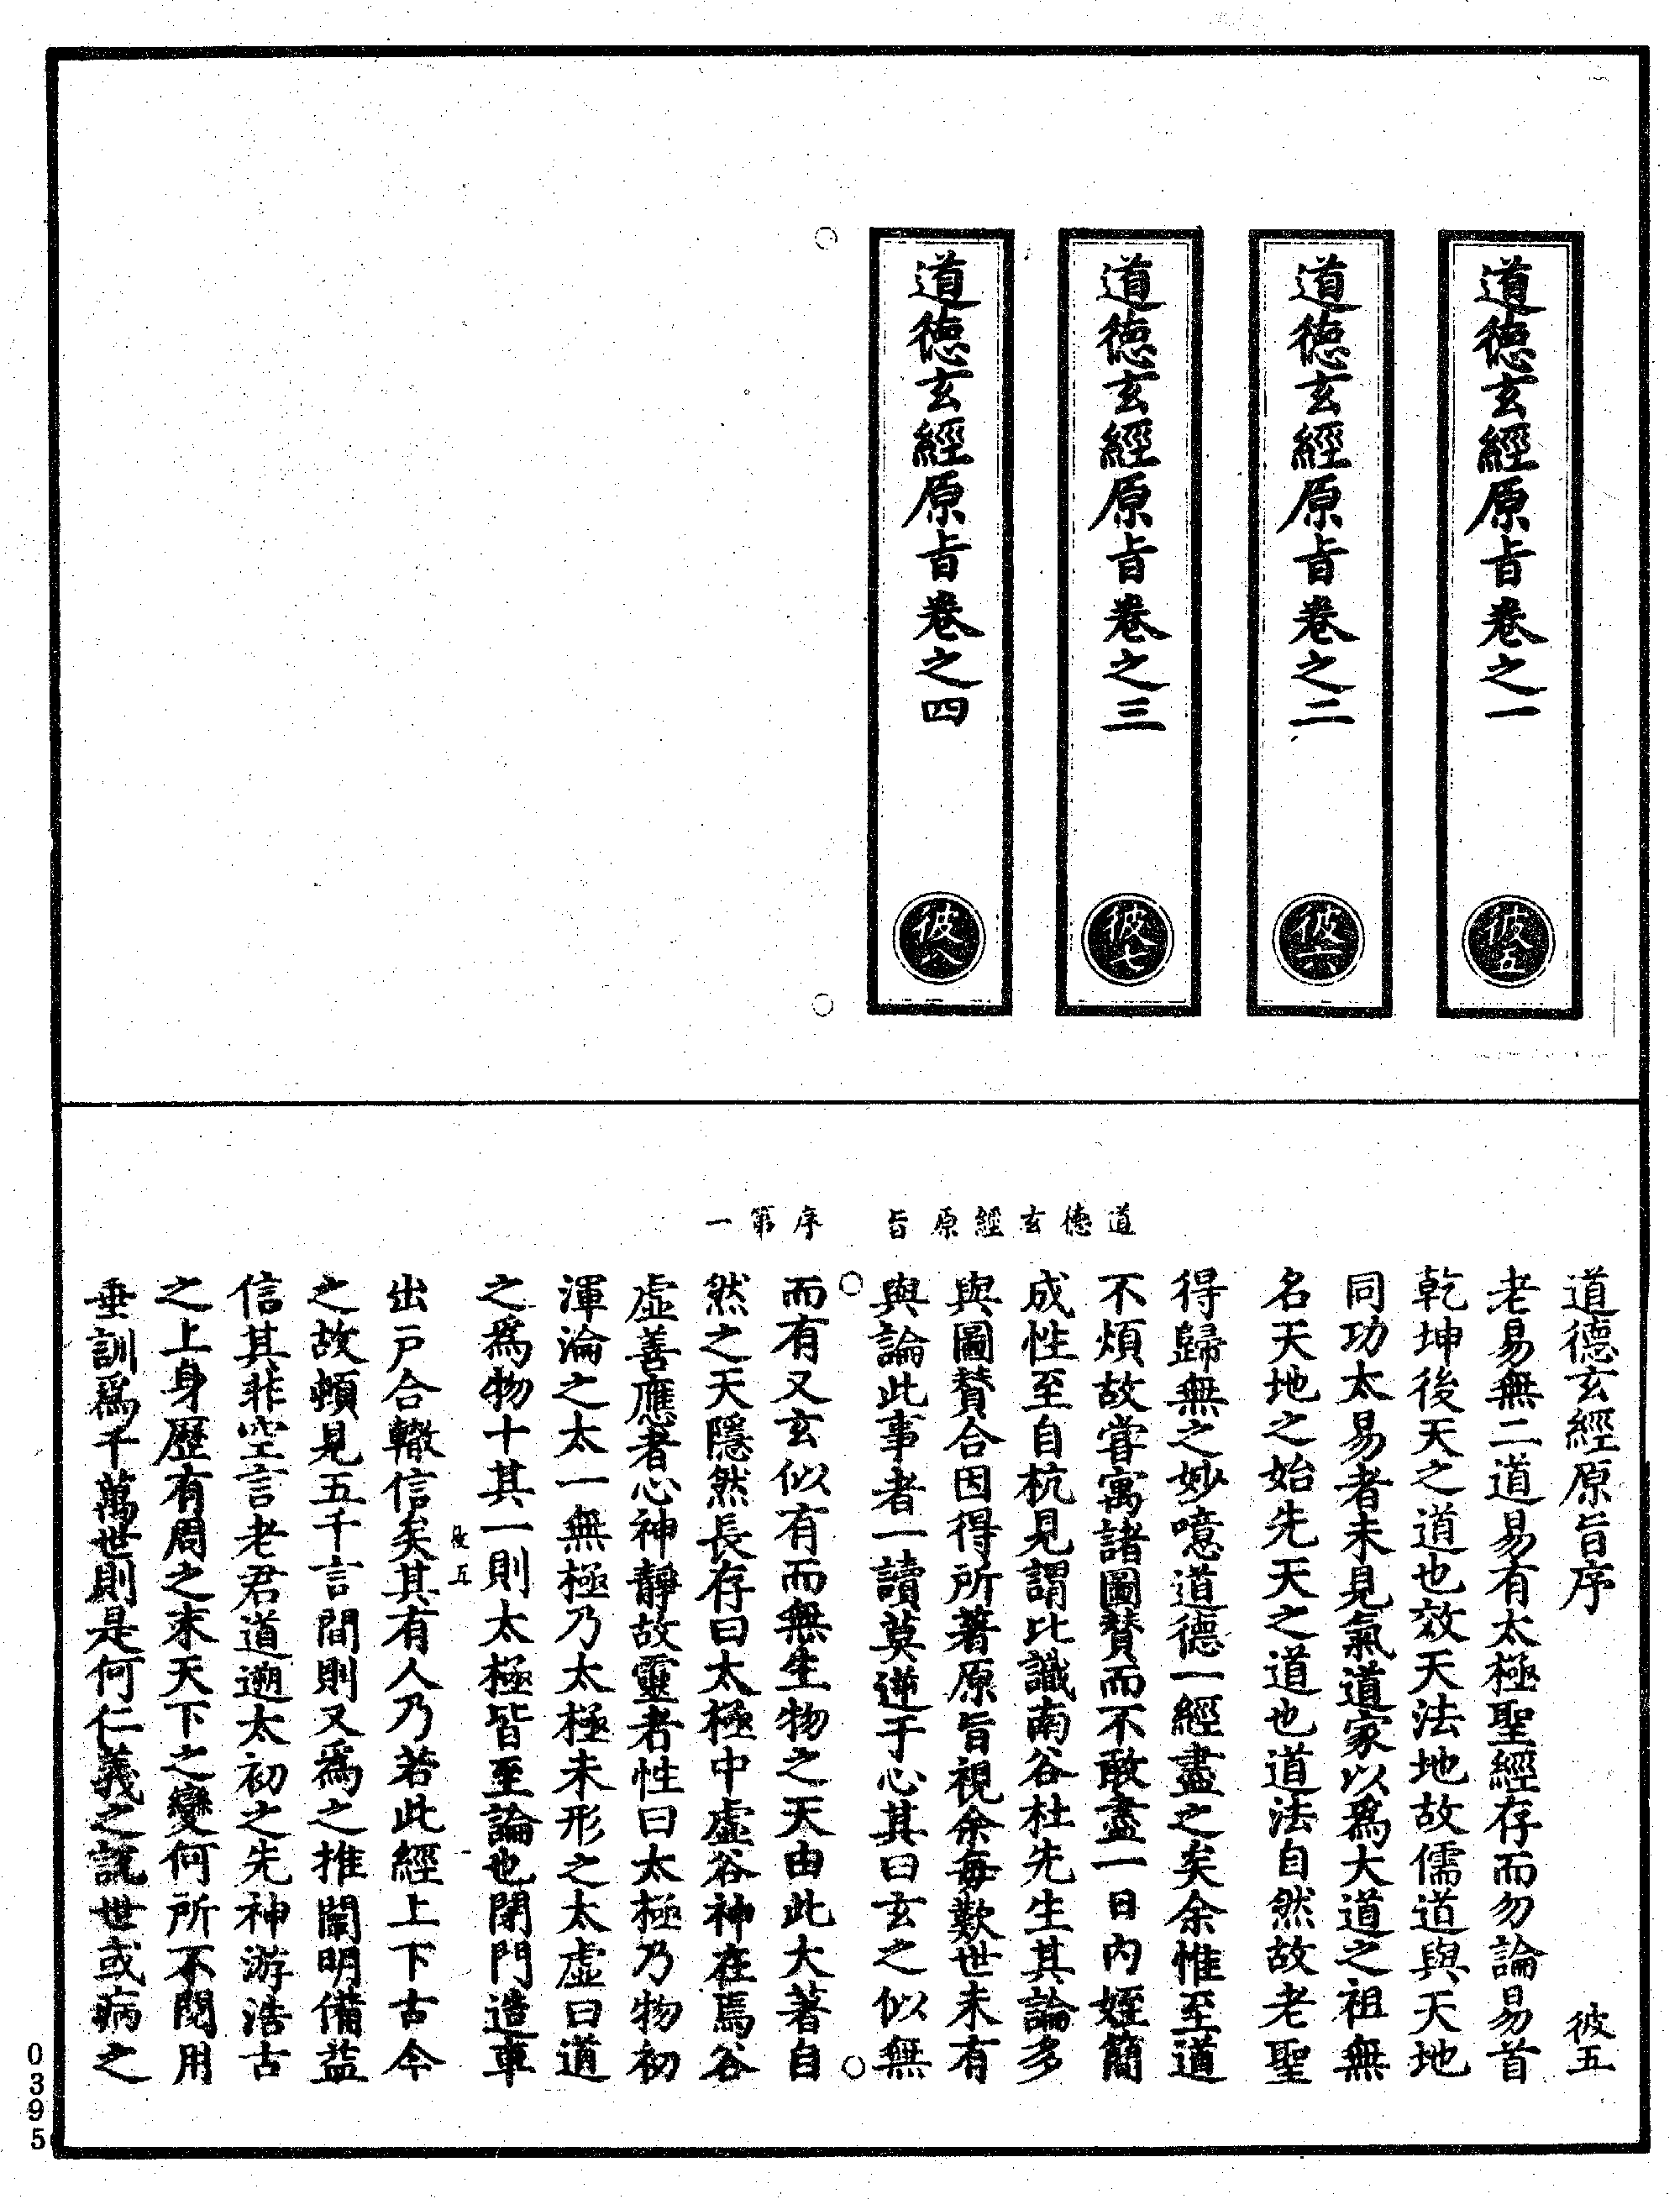 道德玄經原旨卷之一
彼五
道德玄經原旨卷之二
彼六
道德玄經原旨卷之三
彼七
道德玄經原旨卷之四
彼八
道德玄經原旨　序第一
道德玄經原旨序　彼五
老易無二道易有太極聖經存而勿論易首
乾坤後天之道也效天法地故儒道與天地
同功太易者未見氣道家以爲大道之祖無
名天地之始先天之道也道法自然故老聖
得歸無之妙噫道德一經盡之矣余惟至道
不煩故嘗寓諸圖贊而不敢盡一日內姪簡
成性至自杭見謂比識南谷杜先生其論多
與圖贊合因得所著原旨視余每歎世未有
與論此事者一讀莫逆于心其曰玄之似無
而有又玄似有而無生物之天由此大著自
然之天隱然長存曰太極中虛谷神在焉谷
虛善應者心神靜故靈者性曰太極乃物初
渾淪之太一無極乃太極未形之太虛曰道
之爲物十其一則太極皆至論也閉門造車
彼五
出戶合轍信矣其有人乃若此經上下古今
之故頓見五千言間則又爲之推闡明備益
信其非空言老君道遡太初之先神游浩古
之上身歷有周之末天下之變何所不閱用
垂訓爲千萬世則是何仁義之說世或病之
0395